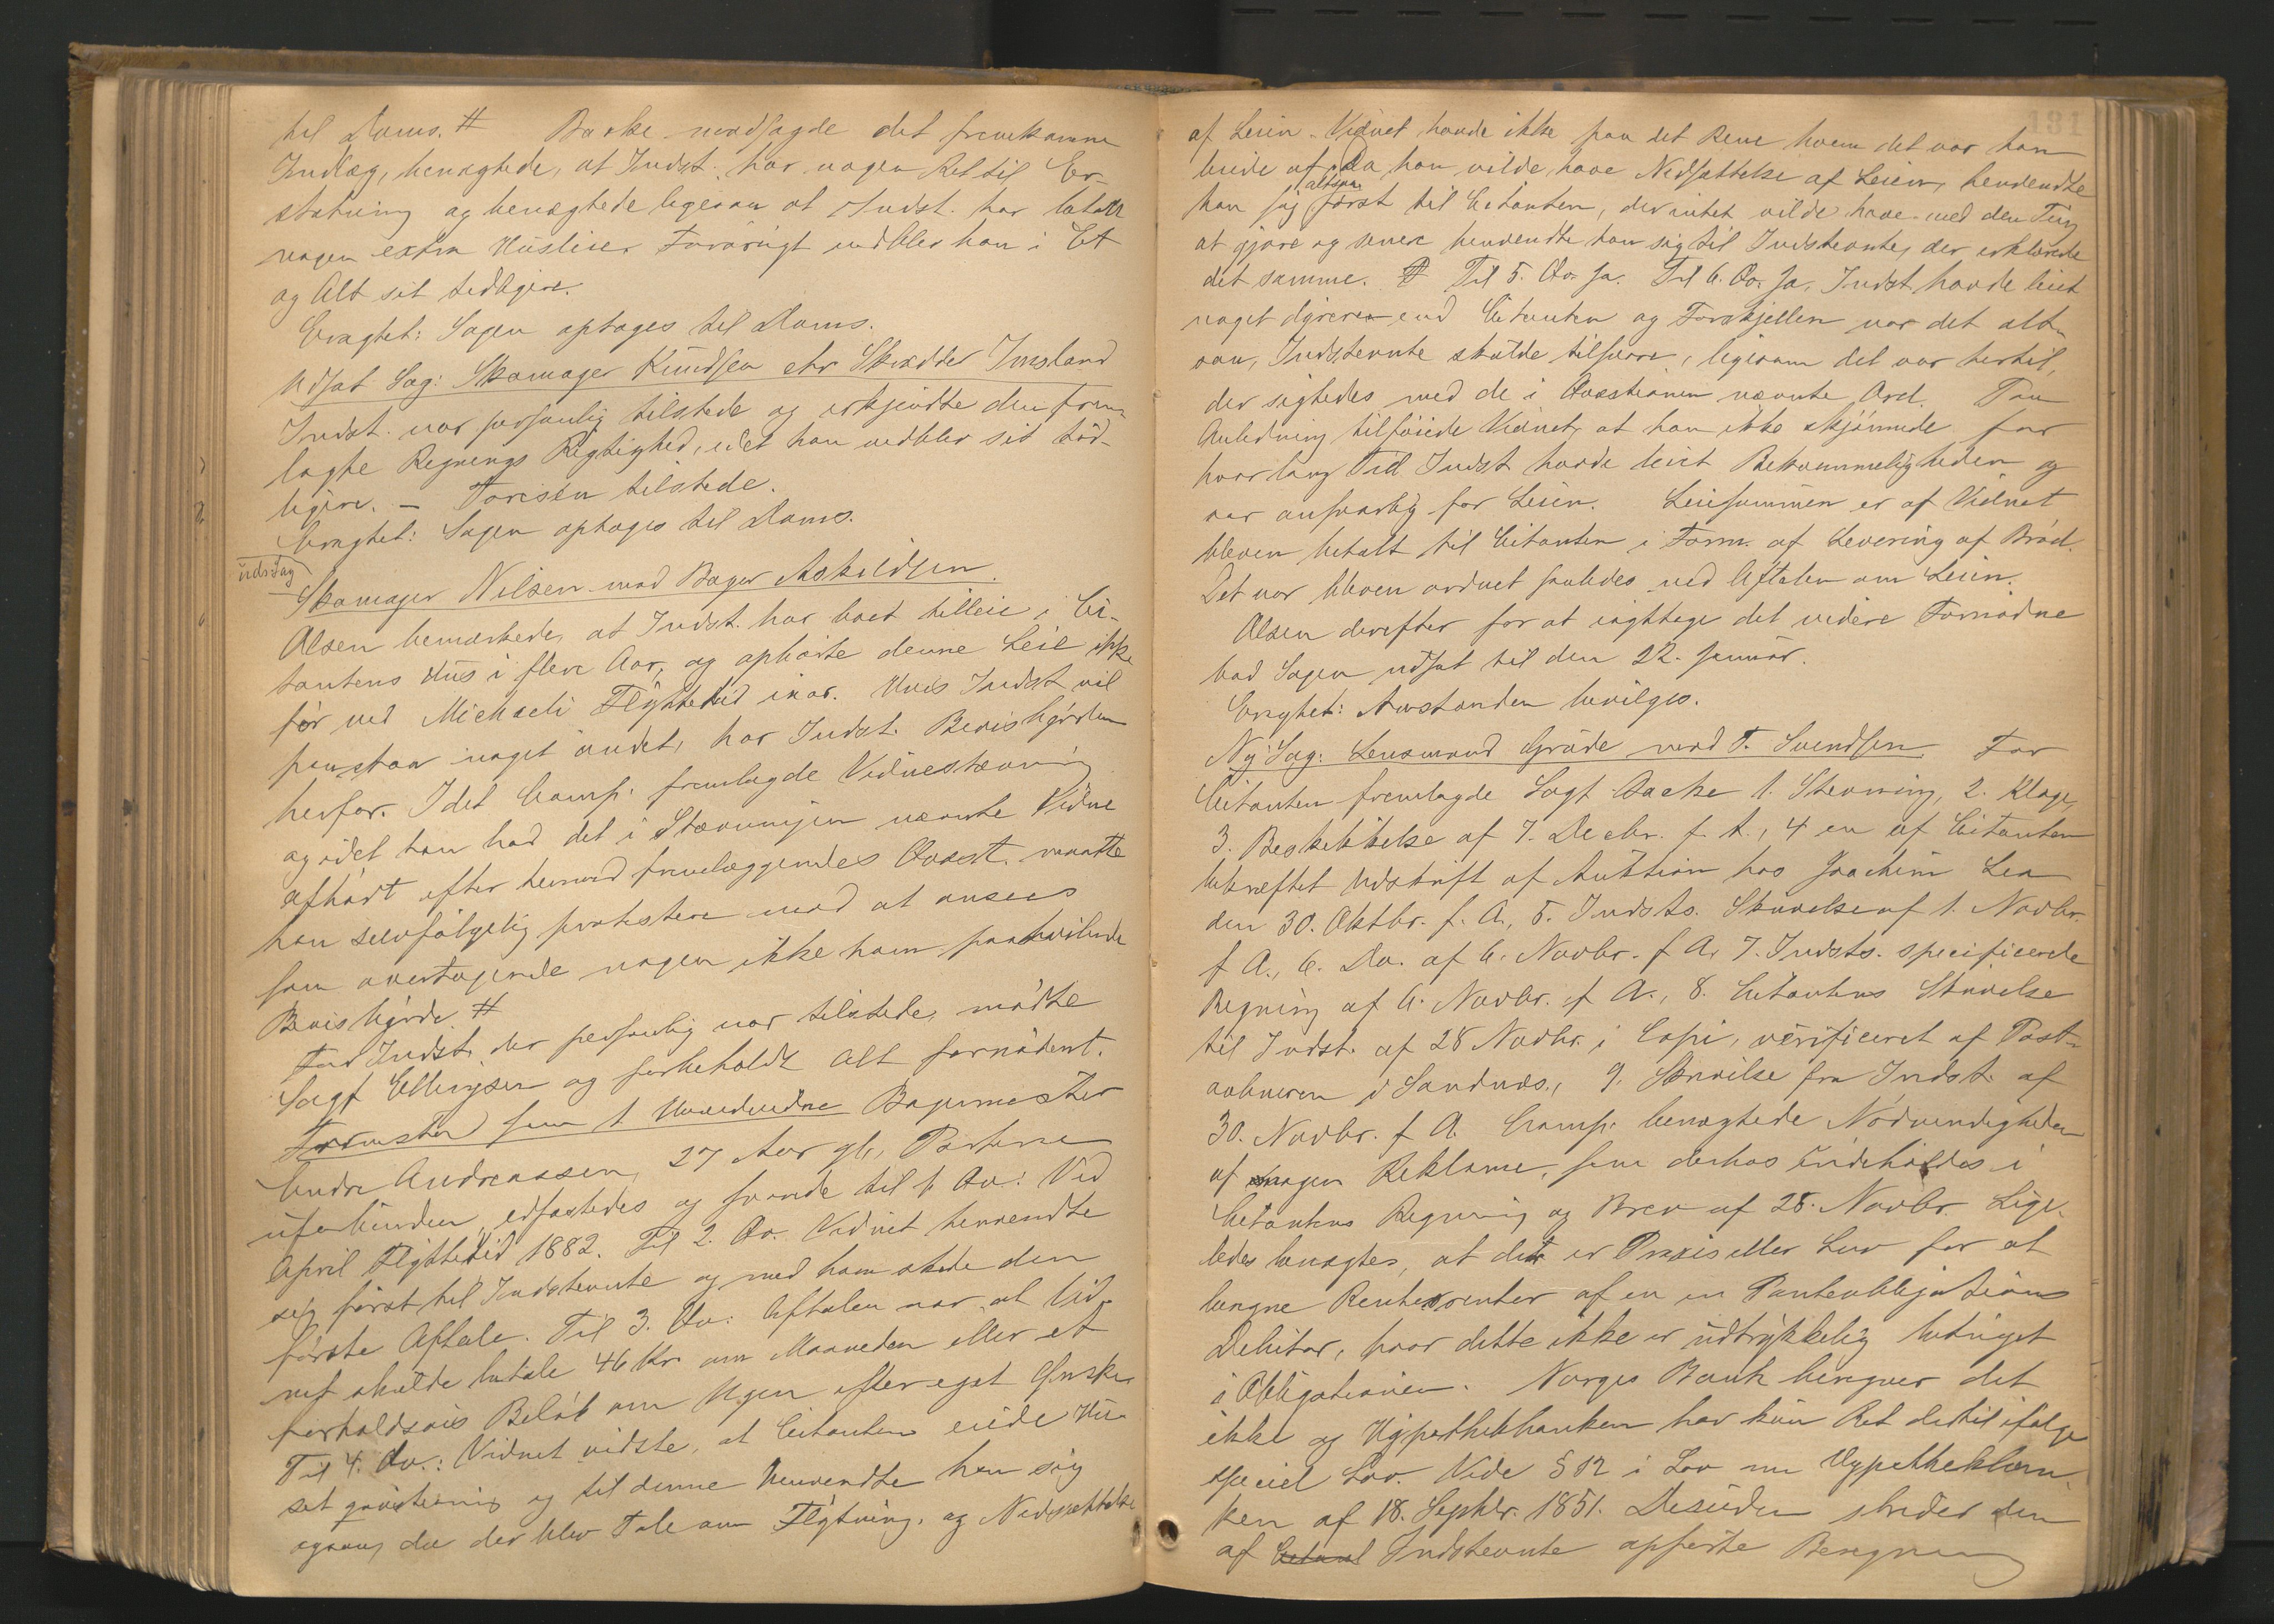 til Doms. # Barke modsagde det fremkomne
Indlæg, benægtede, at Indst. har nogen Ret til Er-
statning og benægtede ligesaa at Indst. har betalt
nogen extra Husleie. Forøvrigt vedblev han i Et
og Alt sit tidligere.
Eragtet: Sagen optages til Doms.
Udsat Sag: Skomager Knudsen ctr Skrædder Imsland
Indst. var personlig tilstede og erkjendte den frem-
lagte Regnings Rigtighed, idet han vedblev sit tid-
ligere. – tilstede.
Eragtet: Sagen optages til Doms.
uds Sag
Skomager Nilsen mod Bager Askildsen.
Olsen bemærkede, at Indst. har boet tilleie i Ci-
tantens Hus i flere Aar, og ophørte denne Leie ikke
før ved Michaeli Flyttetid ivar. Hvis Indst vil
paastaa noget andet, har Indst. Bevisbyrden
herfor. Idet Comp. fremlagde Vidnestævning
og idet han bad det i Stævningen nævnte Vidne
afhørt efter hermed fremlæggendes Qvæst. maatte
han selvfølgelig protestere mod at ansees
som overtagende nogen ikke ham paahvilende
Bevisbyrde. #
For Indst. der personlig var tilstede, mødte
Sagf Ellingsen og forbeholdt alt fornødent.
Fremstod som 1. Hovedvidne Bagermester
Endre Andreassen, 27 Aar gl., Parterne
uforbunden, edfæstedes og svarede til 1 Qv: Ved
April Flyttetid 1882. Til 2. Qv. Vidnet henvendte
sig først til Indstevnte og med ham skede den
første Aftale. Til 3. Qv: Aftalen var, at Vid-
net skulde betale 46 Kr. om Maaneden eller et
forholdsvis Beløb om Ugen efter eget Ønske.
Til 4. Qv.: Vidnet vidste, at Citanten eiede Hu-
set og til denne henvendte han sig
ogsaa, da der blev Tale om Flytning, og Nedsættelse
181
af Leien. Vidnet havde ikke paa det Rene hvem det var han
leiede af. Da han vilde have Nedsættelse af Leien, henvendte
altsaa
han sig først til Citanten, der intet vilde have med den Ting
at gjøre og senere henvendte han sig til Indstevnte, der erklærede
det samme. # Til 5. Qv. Ja. Til 6. Qv. Ja, Indst. havde leiet
noget dyrere end Citanten og Forskjellen var det alt-
saa, Indstevnte skulde tilsvare, ligesom det var hertil,
der sigtedes med de i Qvæstionen nævnte Ord. Paa
Anledning tilføiede Vidnet, at han ikke skjønnede for
hvor lang Tid Indst havde leiet Bekvemmeligheden og
var ansvarlig for Leien. Leiesummen er af Vidnet
bleven betalt til Citanten i Form af Levering af Brød.
Det var bleven ordnet saaledes ved Aftalen om Leien.
Olsen derefter for at iagttage det videre Fornødne
bad Sagen udsat til den 22. Januar.
Eragtet: Anstanden bevilges.
Ny Sag: Lensmand Grude mod T. Svendsen. For
Citanten fremlagde Sagf Aacke 1. Stevning, 2. Klage,
3. Beskikkelse af 7. Decbr. f. A., 4 en af Citanten
bekræftet Udskrift af Auktion hos Joachim Lea
den 30. Oktbr. f. A., 5. Indsts. Skrivelse af 1. Novbr.
f A., 6. Do. af 6. Novbr. f A, 7. Indsts. specificerede
Regning af 6. Novbr. f A., 8. Citantens Skrivelse
til Indst. af 28 Novbr. i Copi, verificeret af Post-
aabneren i Sandnes, 9. Skrivelse fra Indst. af
30. Novbr. f A. Comp. benægtede Nødvendigheden
af nogen Reklame, som derhos indeholdes i
Citantens Regning og Brev af 28. Novbr. Lige-
ledes benægtes, at det er Praxis eller Lov for at
beregne Rentesrenter af en en Panteobligations
Debitor, hvor dette ikke er udtrykkelig betinget
i Obligationen. Norges Bank beregner det
ikke og Hypothekbanken har kun Ret dertil ifølge
speciel Lov. Vide § 12 i Lov om Hypothekban-
ken af 18. Septbr. 1851. Desuden strider den
af Indstevnte opførte Beregning